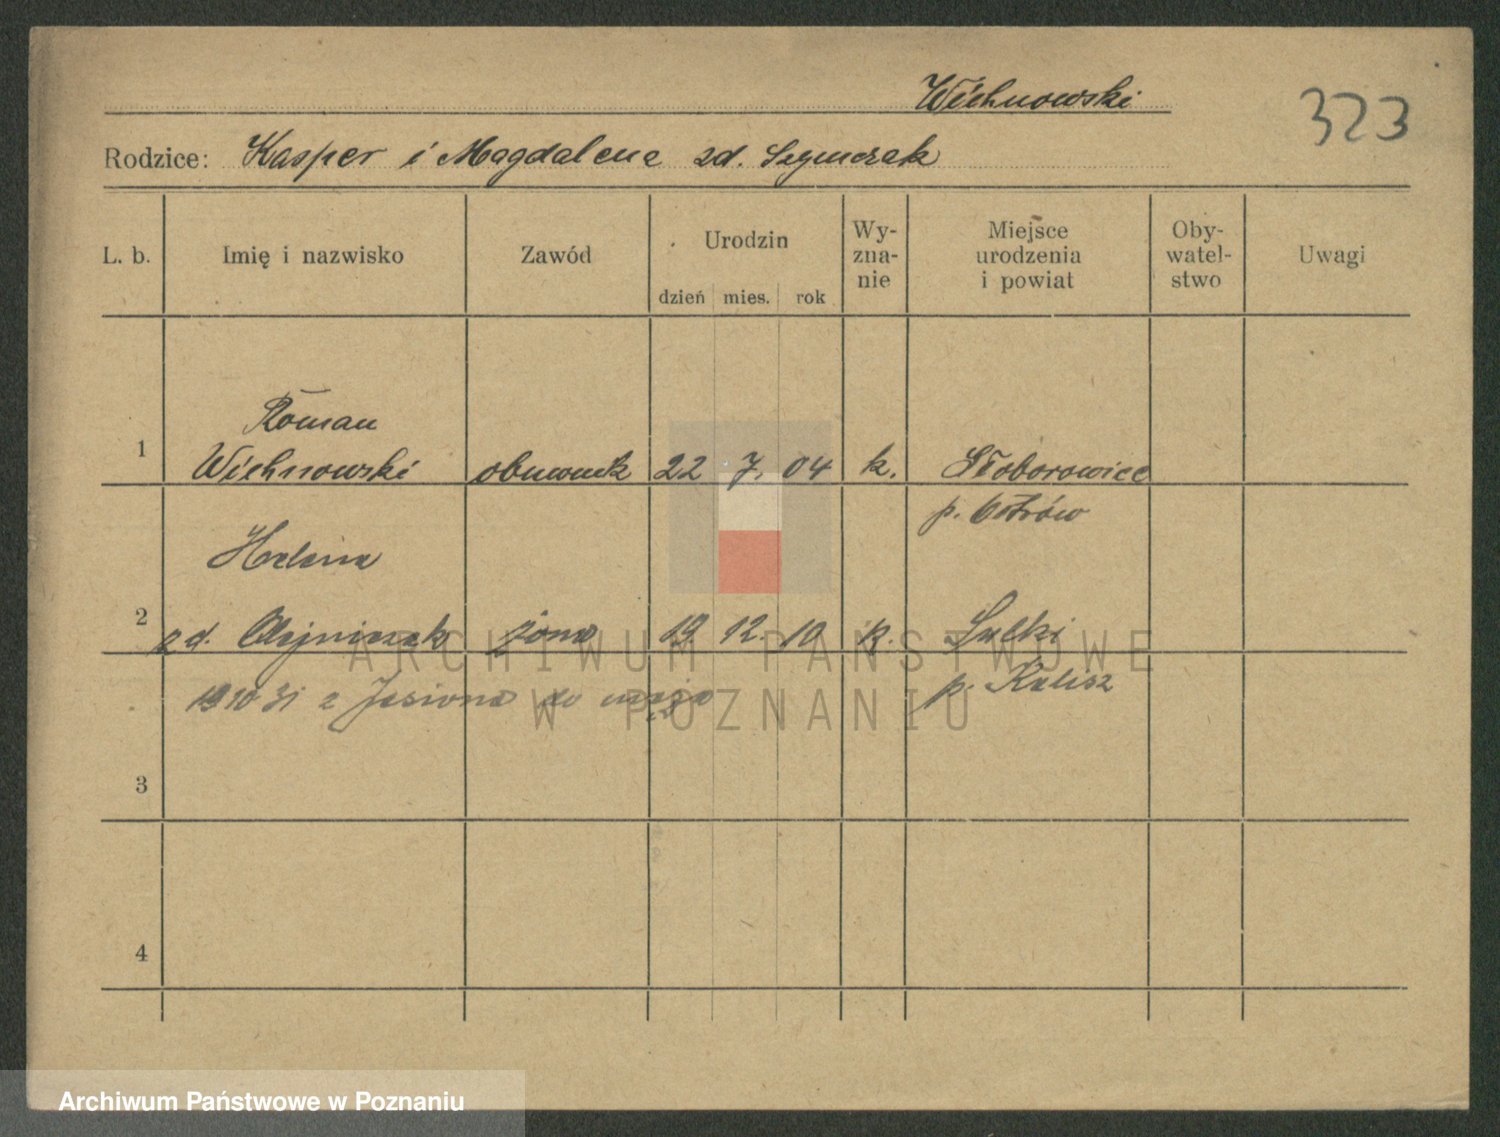 Wichnowski
323
Rodzice: Kasper i Magdalena zd. Szymczak
L. b.
Imię i nazwisko
Zawód
Urodzin
dzień mies. rok
Wy-
zna-
nie
Miejsce
urodzenia
i powiat
Oby-
watel-
stwo
Uwagi
Roman
1 Wichnowski obuwnik 22 7. 04 k. Słoborowice
p. Ostrów
Helena
2 zd. Olejniczak żona 19. 12. 10 k. Sulki
p. Kalisz
19 10 31 z Jasiona do męża
3
4
ARCHIWUM PAŃSTWOWE
W POZNANIU
Archiwum Państwowe w Poznaniu